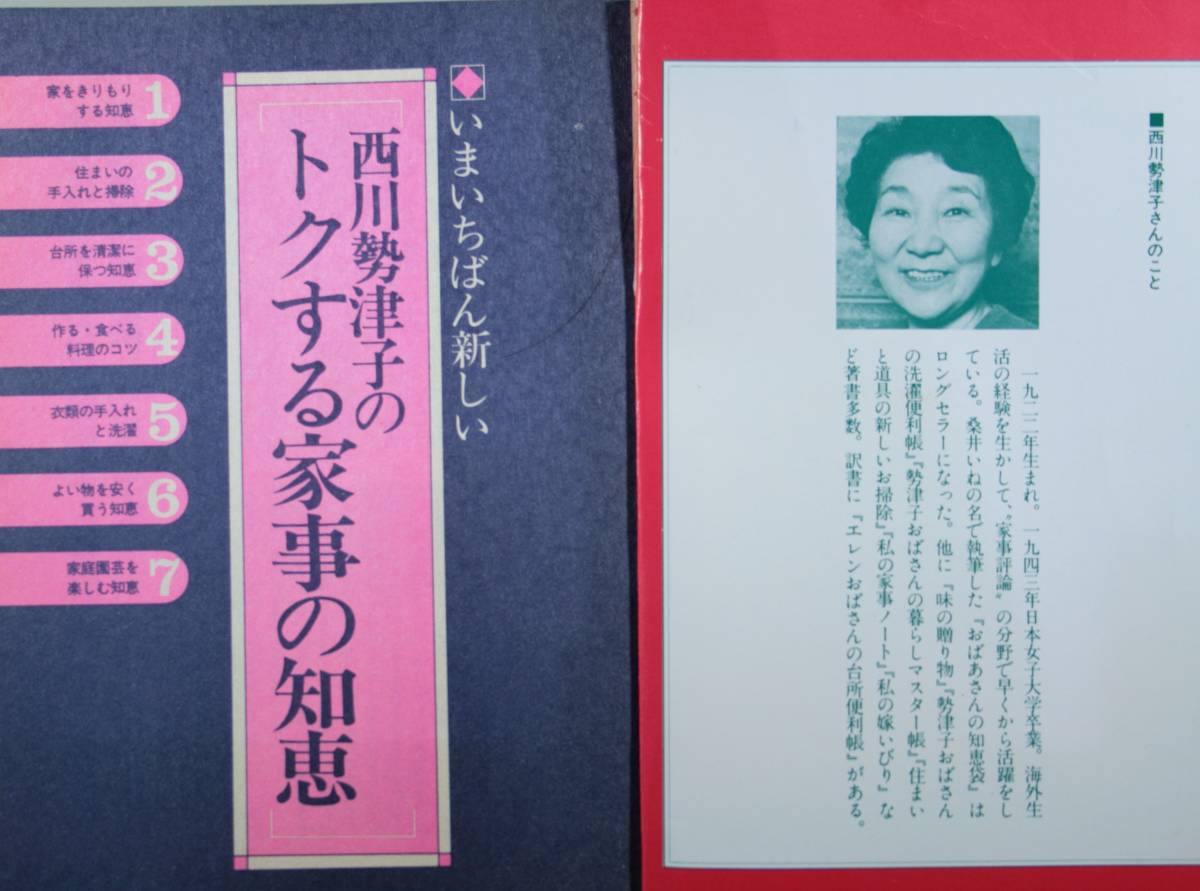 いまいちばん新しい
西川勢津子の
トクする家事の知恵
1
家をきりもり
する知恵
2
住まいの
手入れと掃除
3
台所を清潔に
保つ知恵
4
作る・食べる
料理のコツ
5
衣類の手入れ
と洗濯
6
よい物を安く
買う知恵
7
家庭園芸を
楽しむ知恵
■西川勢津子さんのこと
一九二二年生まれ。一九四三年日本女子大学卒業。海外生
活の経験を生かして、〝家事評論〟の分野で早くから活躍をし
ている。桑井いねの名で執筆した『おばあさんの知恵袋』は
ロングセラーになった。他に『味の贈り物』『勢津子おばさん
の洗濯便利帳』『勢津子おばさんの暮らしマスター帳』『住まい
と道具の新しいお掃除』『私の家事ノート』『私の嫁いびり』な
ど著書多数。訳書に『エレンおばさんの台所便利帳』がある。